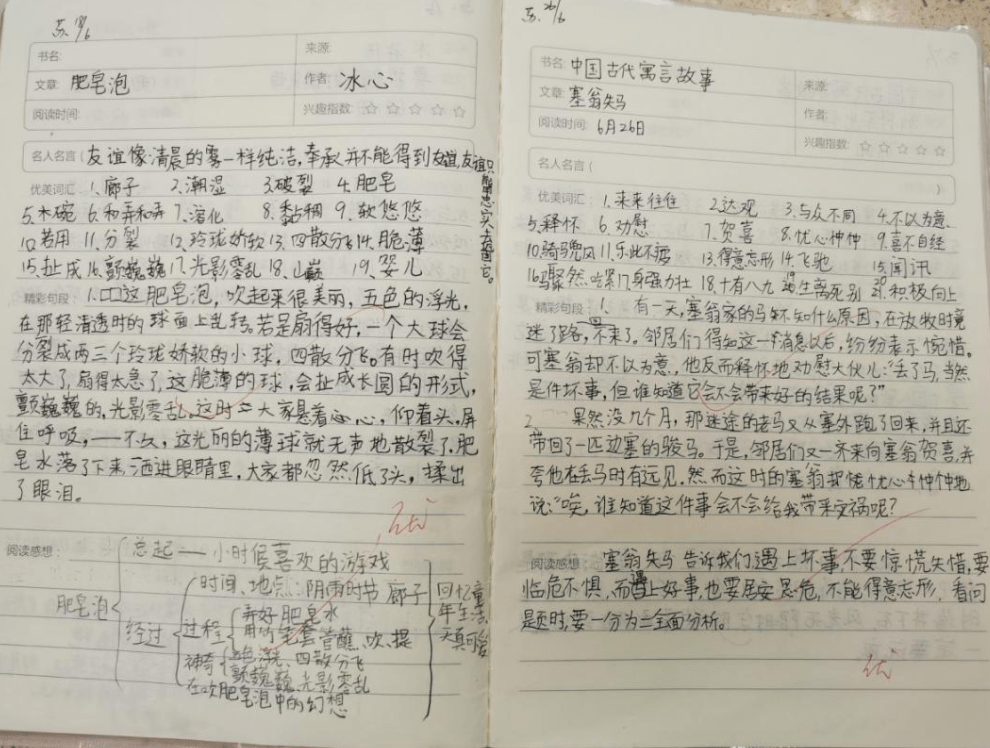 五.19/6
书名:
来源:
文章: 肥皂泡
作者: 冰心
阅读时间:
兴趣指数: ☆ ☆ ☆ ☆ ☆
名人名言(友谊像清晨的雾一样纯洁,奉承并不能得到友谊,友谊只
能用忠实去巩固它。
优美词汇 1、廊子 2、潮湿 3、破裂 4、肥皂
5、木碗 6、和弄和弄 7、溶化 8、黏稠 9、软悠悠
10、若用 11、分裂 12、玲珑娇软 13、四散分飞 14、脆薄
15、扯成 16、颤巍巍 17、光影零乱 18、山巅 19、婴儿
精彩句段 1.口口这肥皂泡,吹起来很美丽,五色的浮光,
在那轻清透时的球面上乱转。若是扇得好,一个大球会
分裂成两三个玲珑娇软的小球,四散分飞。有时吹得
太大了,扇得太急了,这脆薄的球,会扯成长圆的形式,
颤巍巍的,光影零乱。这时大家悬着心,仰着头,屏
住呼吸,——不久,这光丽的薄球就无声地散裂了,肥
皂水落了下来,洒进眼睛里,大家都忽然低了头,揉出
了眼泪。
优
阅读感想:
肥皂泡
总起——小时候喜欢的游戏
经过
时间、地点:阴雨时节 廊子
过程
弄好肥皂水
用笔套管蘸、吹、提
神奇
五色浮光、四散分飞
颤巍巍、光影零乱
在吹肥皂泡中的幻想
回忆童
年生活,
天真可爱
五.26/6
书名: 中国古代寓言故事
来源:
文章: 塞翁失马
作者:
阅读时间: 6月26日
兴趣指数: ☆ ☆ ☆ ☆ ☆
名人名言( )
优美词汇: 1、来来往往 2、达观 3、与众不同 4、不以为意
5、释怀 6、劝慰 7、贺喜 8、忧心忡忡 9、喜不自经
10、骑骢风 11、乐此不疲 13、得意忘形 14、飞驰 15、闻讯
16、骤然 17、身强力壮 18、十有八九 19、生离死别 20、积极向上
精彩句段: 1、有一天,塞翁家的马不知什么原因,在放牧时竟
迷了路,回不来了。邻居们得知这一消息以后,纷纷表示惋惜。
可塞翁却不以为意,他反而释怀地劝慰大伙儿:“丢了马,当然
是件坏事,但谁知道它会不会带来好的结果呢?”
2、果然没几个月,那迷途的老马又从塞外跑了回来,并且还
带回了一匹边塞的骏马。于是,邻居们又一齐来向塞翁贺喜,并
夸他在丢马时有远见,然而这时的塞翁却忧心忡忡地
说:“唉,谁知道这件事会不会给我带来灾祸呢?
阅读感想: 塞翁失马告诉我们遇上坏事,不要惊慌失惜,要
临危不惧,而遇上好事也要居安思危,不能得意忘形,看问
题时,要一分为二全面分析。
优